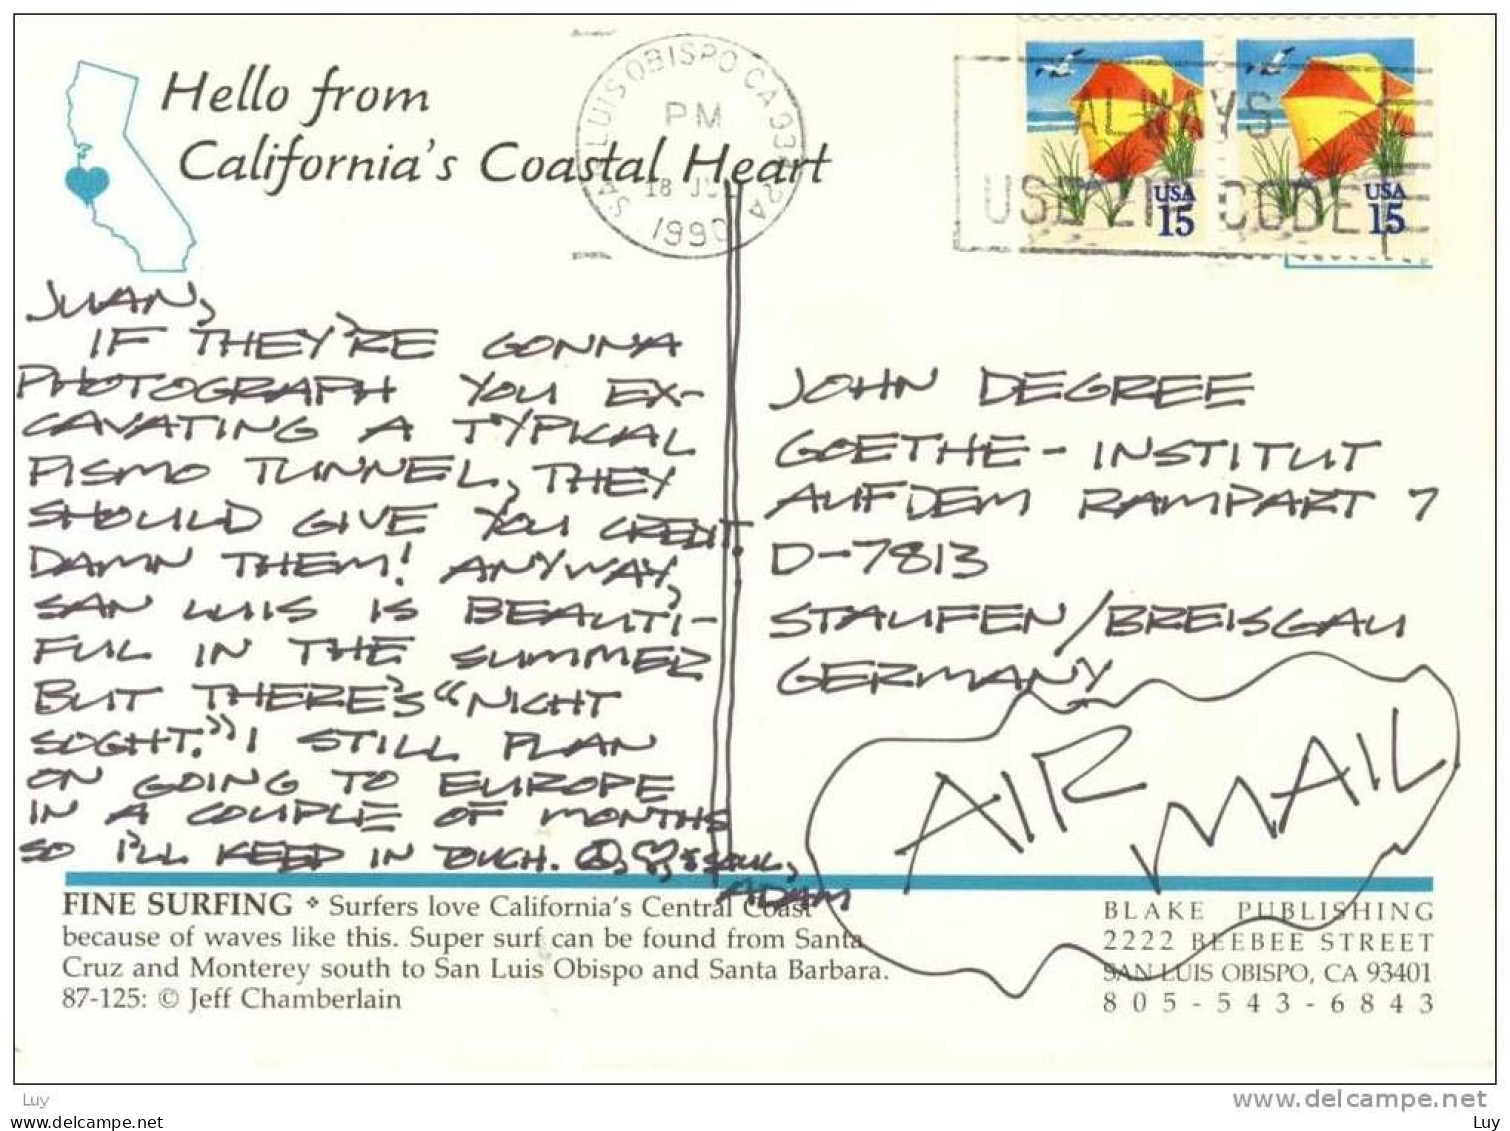 Hello from
California's Coastal Heart
SAN LUIS OBISPO CA 934
PM
18 JUL
1990
2A
ALWAYS
USE ZIP CODE
USA
15
USA
15
JUAN,
IF THEY'RE GONNA
PHOTOGRAPH YOU EX-
CAVATING A TYPICAL
PISMO TUNNEL, THEY
SHOULD GIVE YOU CREDIT.
DAMN THEM! ANYWAY,
SAN LUIS IS BEAUTI-
FUL IN THE SUMMER
BUT THERE'S "NIGHT
SOGHT." I STILL PLAN
ON GOING TO EUROPE
IN A COUPLE OF MONTHS
SO I'LL KEEP IN TOUCH. ☮, ♡, & SOUL,
ADAM
JOHN DEGREE
GOETHE-INSTITUT
AUF DEM RAMPART 7
D-7813
STAUFEN/BREISGAU
GERMANY
AIR MAIL
FINE SURFING ❖ Surfers love California's Central Coast
because of waves like this. Super surf can be found from Santa
Cruz and Monterey south to San Luis Obispo and Santa Barbara.
87-125: © Jeff Chamberlain
BLAKE PUBLISHING
2222 BEEBEE STREET
SAN LUIS OBISPO, CA 93401
805-543-6843
Luy
www.delcampe.net
www.delcampe.net
Luy